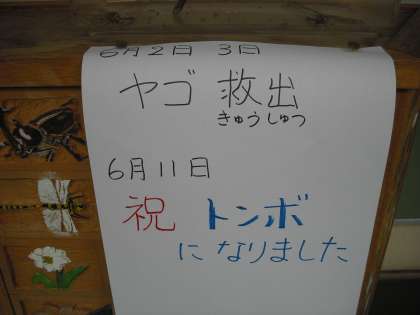 6月2日 3日
ヤゴ 救出
きゅうしゅつ
6月11日
祝 トンボ
になりました